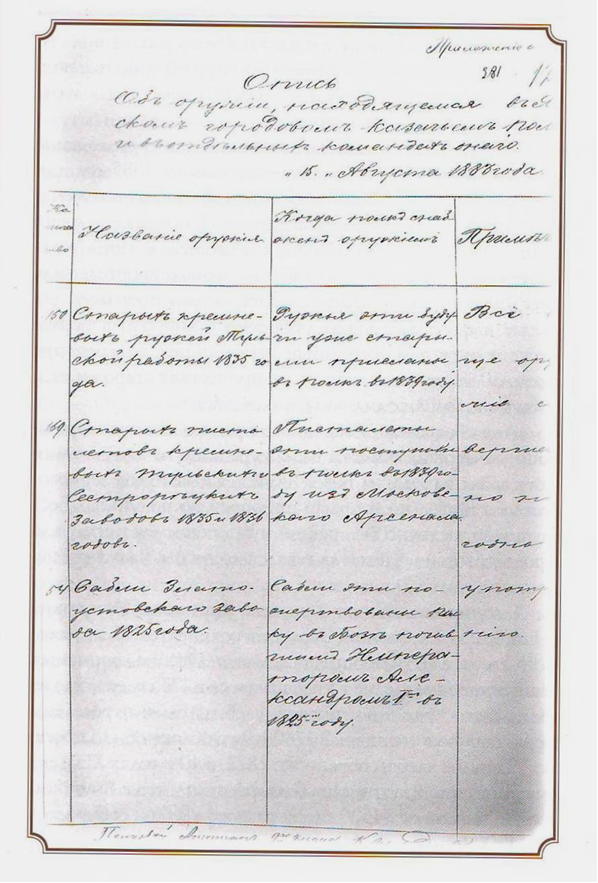 Приложеніе
381 17
Опись
Объ оружіи, находящемся въ Я
скомъ городовомъ казачьемъ пол
и въ отдѣльныхъ командахъ онаго.
„15„ Августа 1883 года
Ко
личе
ство
Названіе оружія
Когда полкъ снаб
женъ оружіемъ
Примѣч
150 Старыхъ кремне-
выхъ ружей Туль
ской работы 1835 го
да.
Ружья эти буду
чи уже стары-
ми присланы
въ полкъ въ 1839 году
Все
это ору
жіе
169. Старыхъ писто
летовъ кремне-
выхъ тульскихъ и
Сестрорѣцкихъ
заводовъ 1835 и 1836
годовъ.
Пистолеты
эти поступили
въ полкъ въ 1839 го-
ду изъ Московс-
каго Арсенала.
но н
годно
54 Сабли Злато-
устовскаго заво
да 1825 года.
Сабли эти по-
жертвованы пол
ку въ Бозѣ почив
шимъ Импера-
торомъ Але-
ксандромъ Iмъ въ
1825 году.
къ употр
нію.
Полковой